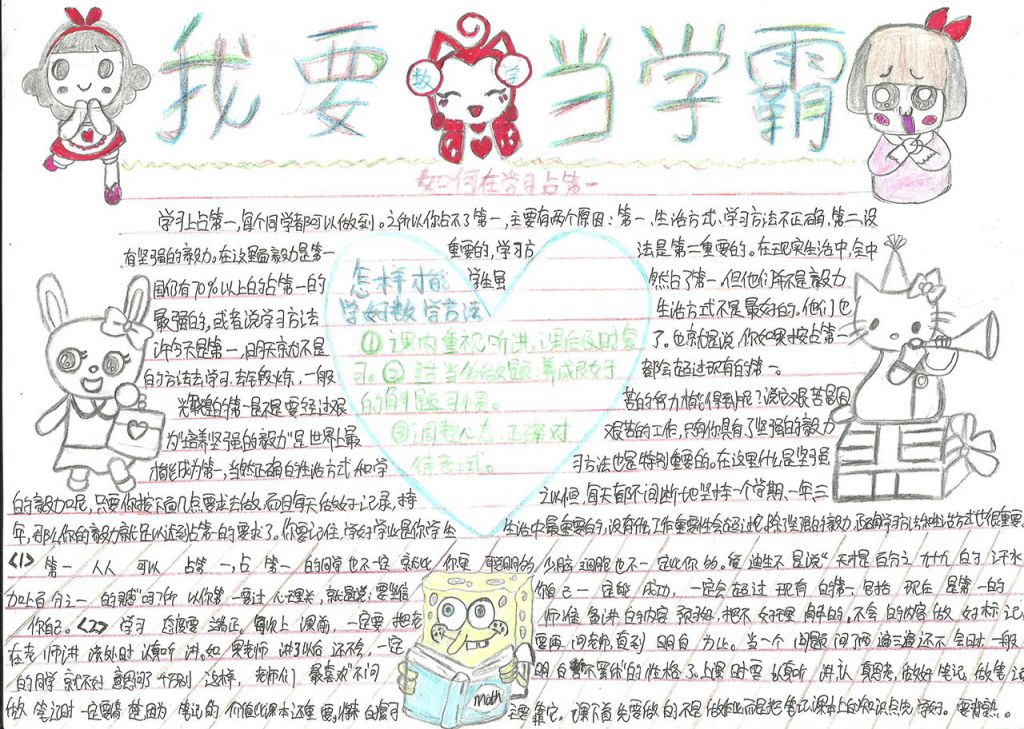 我要当学霸
数学
如何在学习占第一
学习上占第一,每个同学都可以做到。之所以你占不了第一,主要有两个原因:第一、生活方式、学习方法不正确,第二、没
有坚强的毅力。在这里面毅力是第一重要的,学习方法是第二重要的。在现实生活中,全中
国仍有70%以上的占第一的学生虽然占了第一,但他们并不是毅力
最强的,或者说学习方法生活方式不是最好的。他们也
许今天是第一,明天就不是了。也就是说,你如果按占第一
的方法去学习,去锻炼,一般都会超过现有的第一。
光辉煌的第一是不是要经过艰苦的努力才能得到呢?说它艰苦是因
为"培养坚强的毅力"是世界上最艰苦的工作,只有你具有了坚强的毅力
才能成为第一,当然正确的生活方式和学习方法也是特别重要的。在这里什么是坚强
的毅力呢,只要你按下面几点要求去做,而且每天做好记录,持之以恒,每天都不间断地坚持一个学期、一年、三
年,那么你的毅力就足以达到占第一的要求了。你要记住,学好学业是你学生生活中最重要的,没有什么工作重要性会超过它,除了坚强的毅力,正确的学习方法和生活方式也很重要。
怎样才能
学好数学方法
①课内重视听讲,课后及时复
习。②适当多做题,养成良好
的解题习惯。
③调整心态,正确对
待考试。
<1> 第一 人人 可以 占第一,占 第一 的同学也不一定 就比 你更 聪明的 大脑细胞也不一定比你的多。爱迪生不是说"天才是百分之九十九 的 汗水
加上百分之一 的灵感"吗?所 以你第一要过心理关,就是说:要相信你自己一定能 成功, 一定会超过 现有 的第一,包括 现在 是第一的
你自己。<2> 学习 态度要 端正。每次上 课前,一定要 把老师准备讲的内容 预习好,把不 好理 解的、不会 的内容做 好标记,
在老师讲 该处时 认真听 讲。如 果老师 讲了以后还不会,一定要再问老师,直到 明白 为止。当一个 问题问了两遍三遍还不会时,一般
的同学 就不好 意思问了,千万别 这样, 老师们 最喜欢"不问明白绝不罢休"的性格了。上课时要 认真听 讲,认真思考,做好笔记。做笔记
做 笔记时一定要清楚,因为 笔记的 价值比课本还重要,将来的复习主要靠它。课下首先要做的不是做作业,而是把笔记、课本上的知识点先学好。要背熟。
math